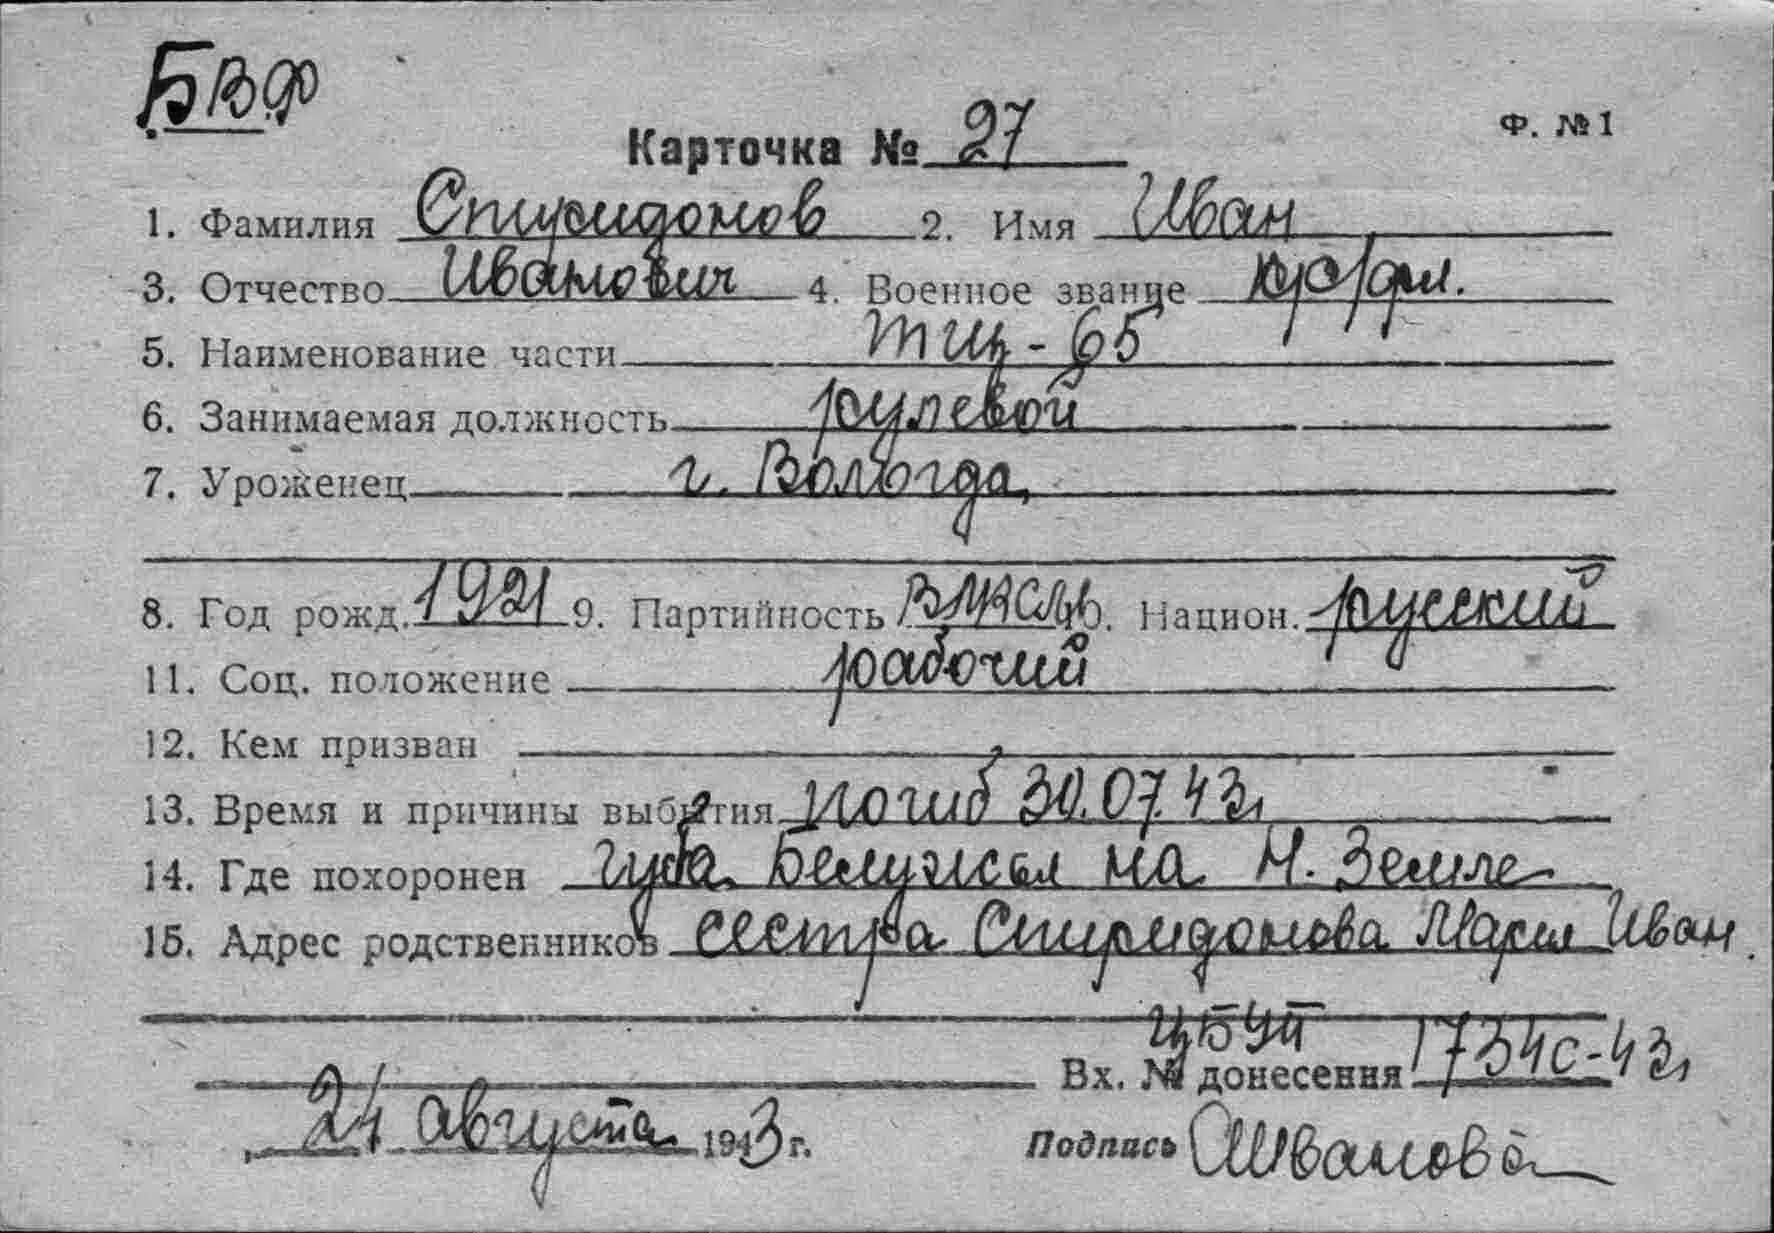 БВФ
Ф. №1
Карточка № 27
1. Фамилия Спиридонов 2. Имя Иван
3. Отчество Иванович 4. Военное звание кр/фл.
5. Наименование части ТЩ-65
6. Занимаемая должность рулевой
7. Уроженец г. Вологда,
8. Год рожд. 1921 9. Партийность ВЛКСМ 10. Национ. русский
11. Соц. положение рабочий
12. Кем призван
13. Время и причины выбытия Погиб 30.07.43г
14. Где похоронен губа Белужья на Н. Земле
15. Адрес родственников сестра Спиридонова Мария Иван.
Вх. № донесения 1734с-43г
24 августа 1943 г. Подпись